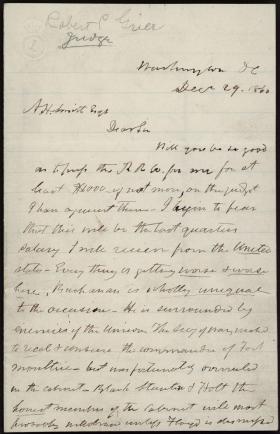 Robert C. Grier
Judge
Washington DC
Decr 29. 1860
A H Smith Esqr
Dear Sir
Will you be so good
as to press the R R Co. for me for at
least $1000 - if not more, on the judgt
I have against them - I begin to fear
that this will be the last quarters
salary I will receive from the United
states - Every thing is getting worse & worse
here, Buchanan is wholly unequal
to the occasion - He is surrounded by
enemies of the Union. The Secy of War, wished
to recal & censure the commander of Fort
Moultrie - but was fortunately overruled
in the cabinet - Black Stanton & Holt the
honest members of the Cabinet will most
probably withdraw unless Floyd is dismissed